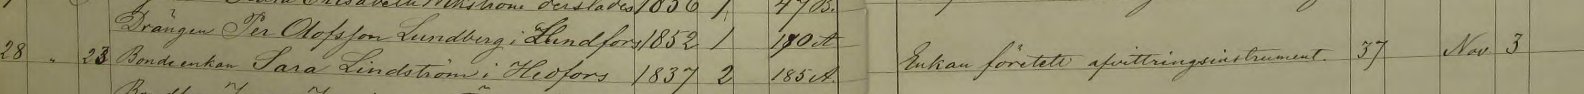 1836 1 47 B.
Drängen Per Olofsson Lundberg i Lundfors 1852 1 170 A
28 " 23 Bondeenkan Sara Lindström i Hedfors 1837 2 185 A. Enkan företett afvittringsinstrument. 37 Nov. 3